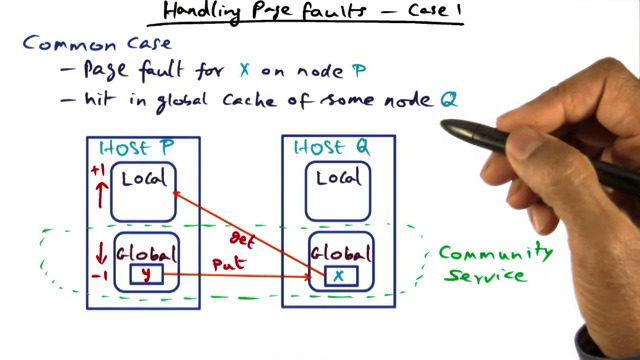 Handling Page faults - Case 1
Common Case
- Page fault for X on node P
- hit in global cache of some node Q
HOST P
HOST Q
+1
Local
Local
Global
Global
get
-1
y
Put
x
Community
Service